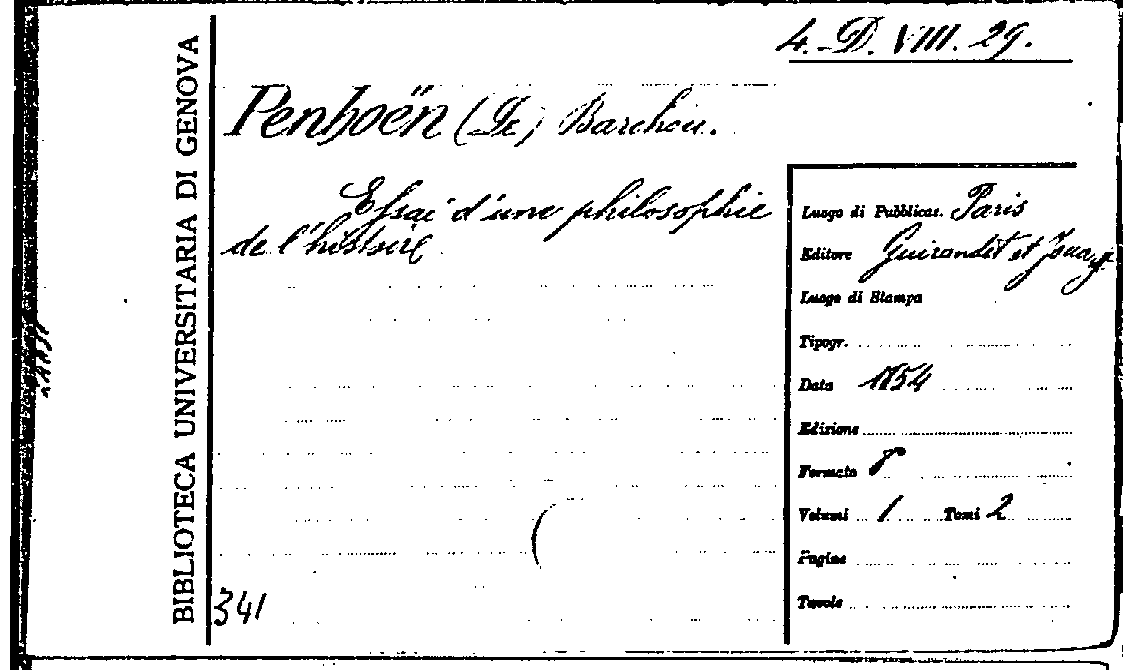 4.-D. VIII. 29.
BIBLIOTECA UNIVERSITARIA DI GENOVA
Penhoën (De) Barchou.
Essai d'une philosophie
de l'histoire
Luogo di Pubblicaz. Paris
Editore Guiraudet et Jouaust
Luogo di Stampa
Tipogr.
Data 1854
Edizione
Formato 8°
Volumi 1 Tomi 2
Pagine
Tavole
341